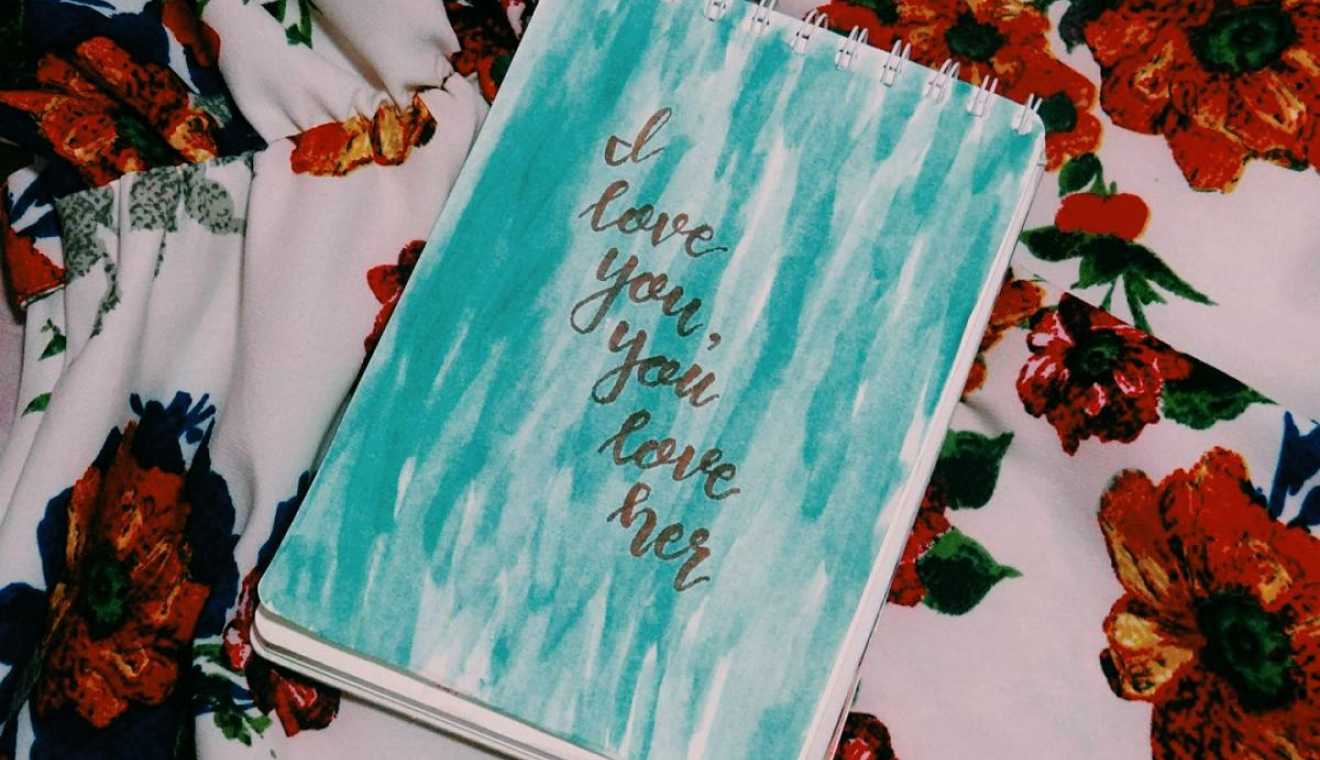 I
love
you,
you
love
her